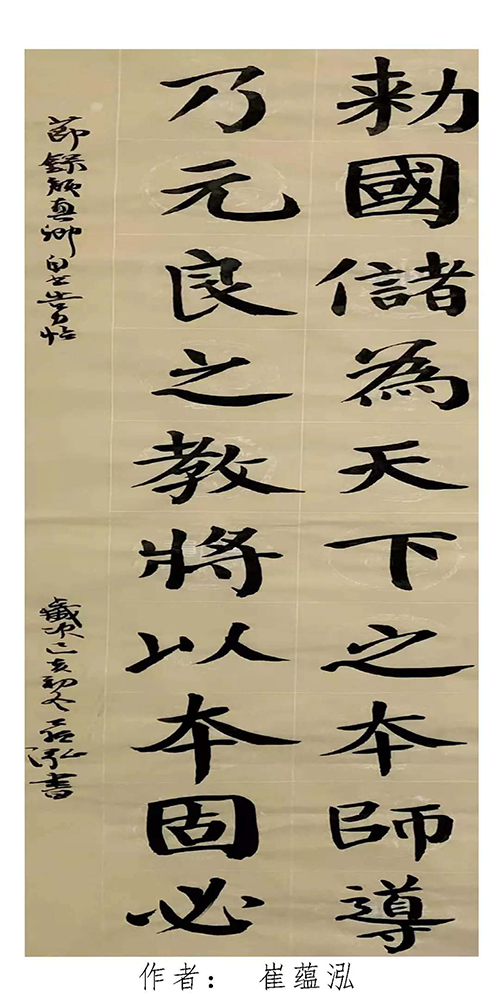 勑國儲為天下之本師導
乃元良之教將以本固必
節錄顏真卿自书告身帖
歲次己亥初冬蕴泓書
作者： 崔蕴泓